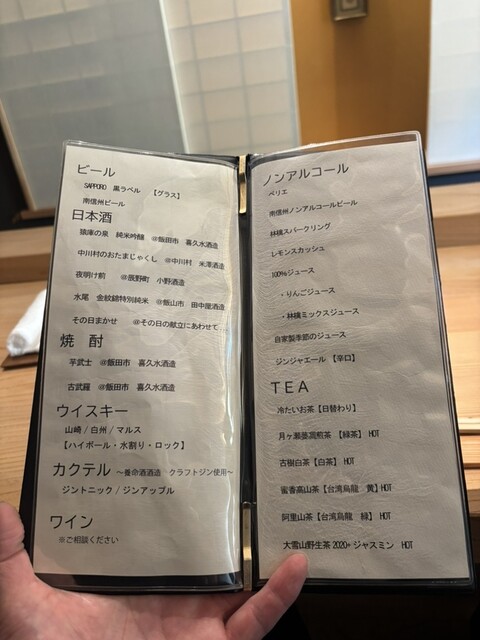 ビール
SAPPORO 黒ラベル 【グラス】
南信州ビール
日本酒
猿庫の泉 純米吟醸 @飯田市 喜久水酒造
中川村のおたまじゃくし @中川村 米澤酒造
夜明け前 @辰野町 小野酒造
水尾 金紋錦特別純米 @飯山市 田中屋酒造
その日まかせ @その日の献立にあわせて
焼 酎
芋武士 @飯田市 喜久水酒造
古武羅 @飯田市 喜久水酒造
ウイスキー
山崎 / 白州 / マルス
【ハイボール・水割り・ロック】
カクテル ～養命酒酒造 クラフトジン使用～
ジントニック / ジンアップル
ワイン
※ご相談ください
ノンアルコール
ペリエ
南信州ノンアルコールビール
林檎スパークリング
レモンスカッシュ
100%ジュース
・りんごジュース
・林檎ミックスジュース
自家製季節のジュース
ジンジャエール 【辛口】
TEA
冷たいお茶【日替わり】
月ヶ瀬萎凋煎茶 【緑茶】 HOT
古樹白茶【白茶】 HOT
蜜香高山茶【台湾烏龍 黄】HOT
阿里山茶【台湾烏龍 緑】 HOT
大雪山野生茶 2020+ ジャスミン HOT